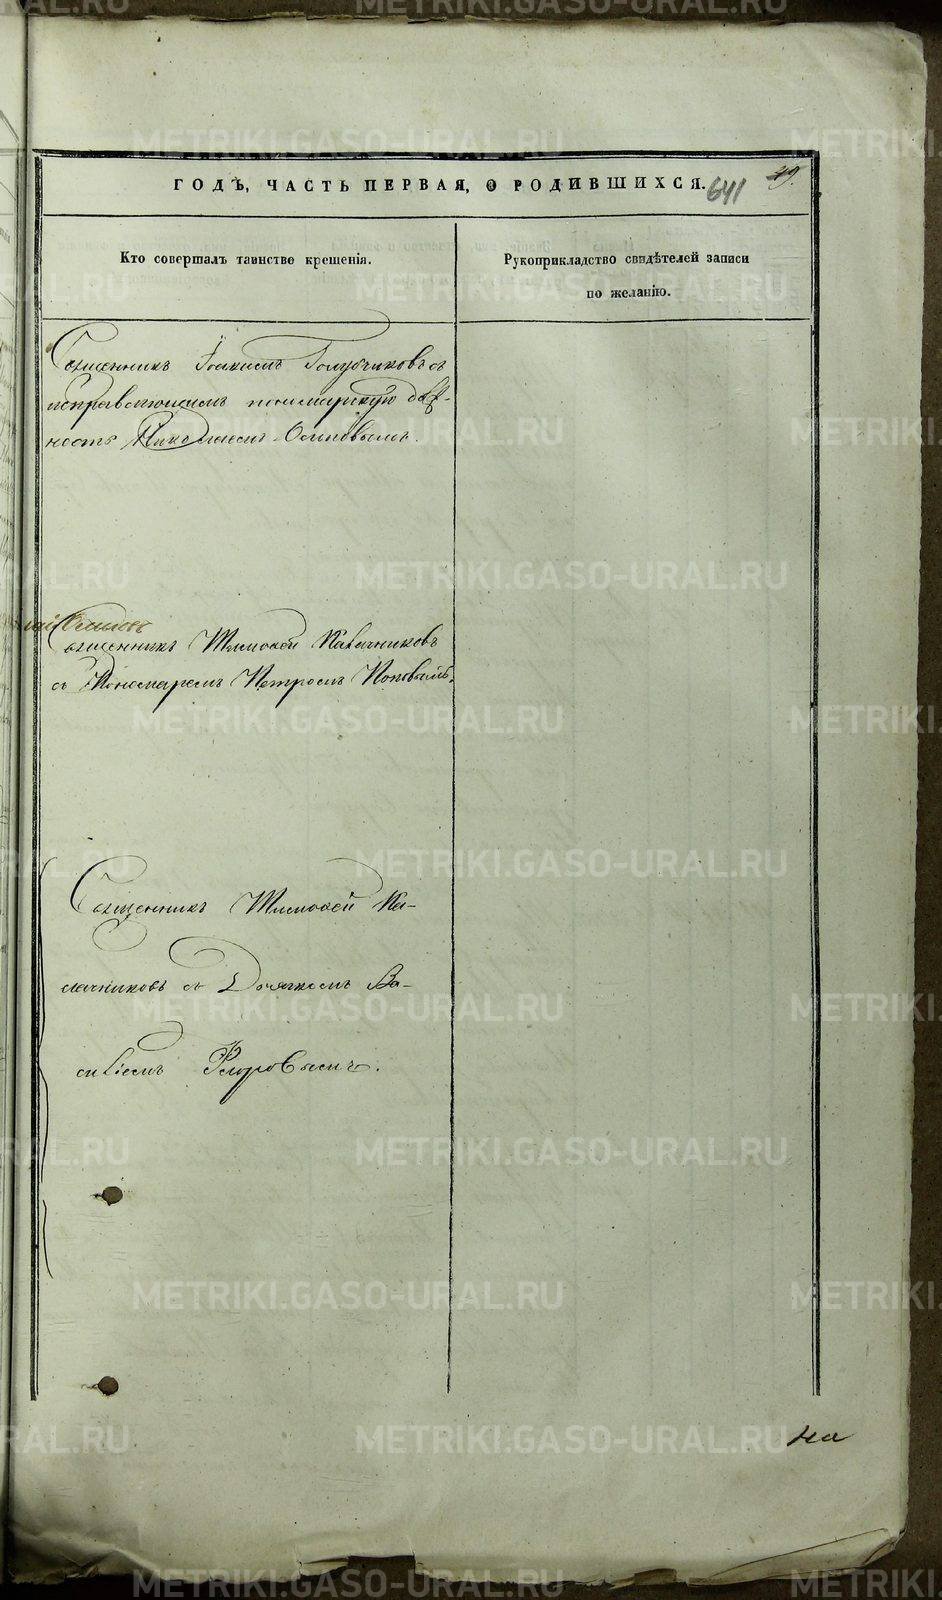 ГОДЪ, ЧАСТЬ ПЕРВАЯ, О РОДИВШИХСЯ. 641 49.
Кто совершалъ таинство крещенія.
Рукоприкладство свидѣтелей записи
по желанію.
Священникъ Іоакимъ Голубчиковъ съ
исправляющимъ пономарскую дол-
ность Николаемъ Осиповымъ.
Священникъ Тимоѳей Калачниковъ
съ Пономаремъ Петромъ Поповымъ.
Священникъ Тимоѳей Ка-
лачниковъ съ Дьячкомъ Ва-
силіемъ Флоровымъ.
на
METRIKI.GASO-URAL.RU